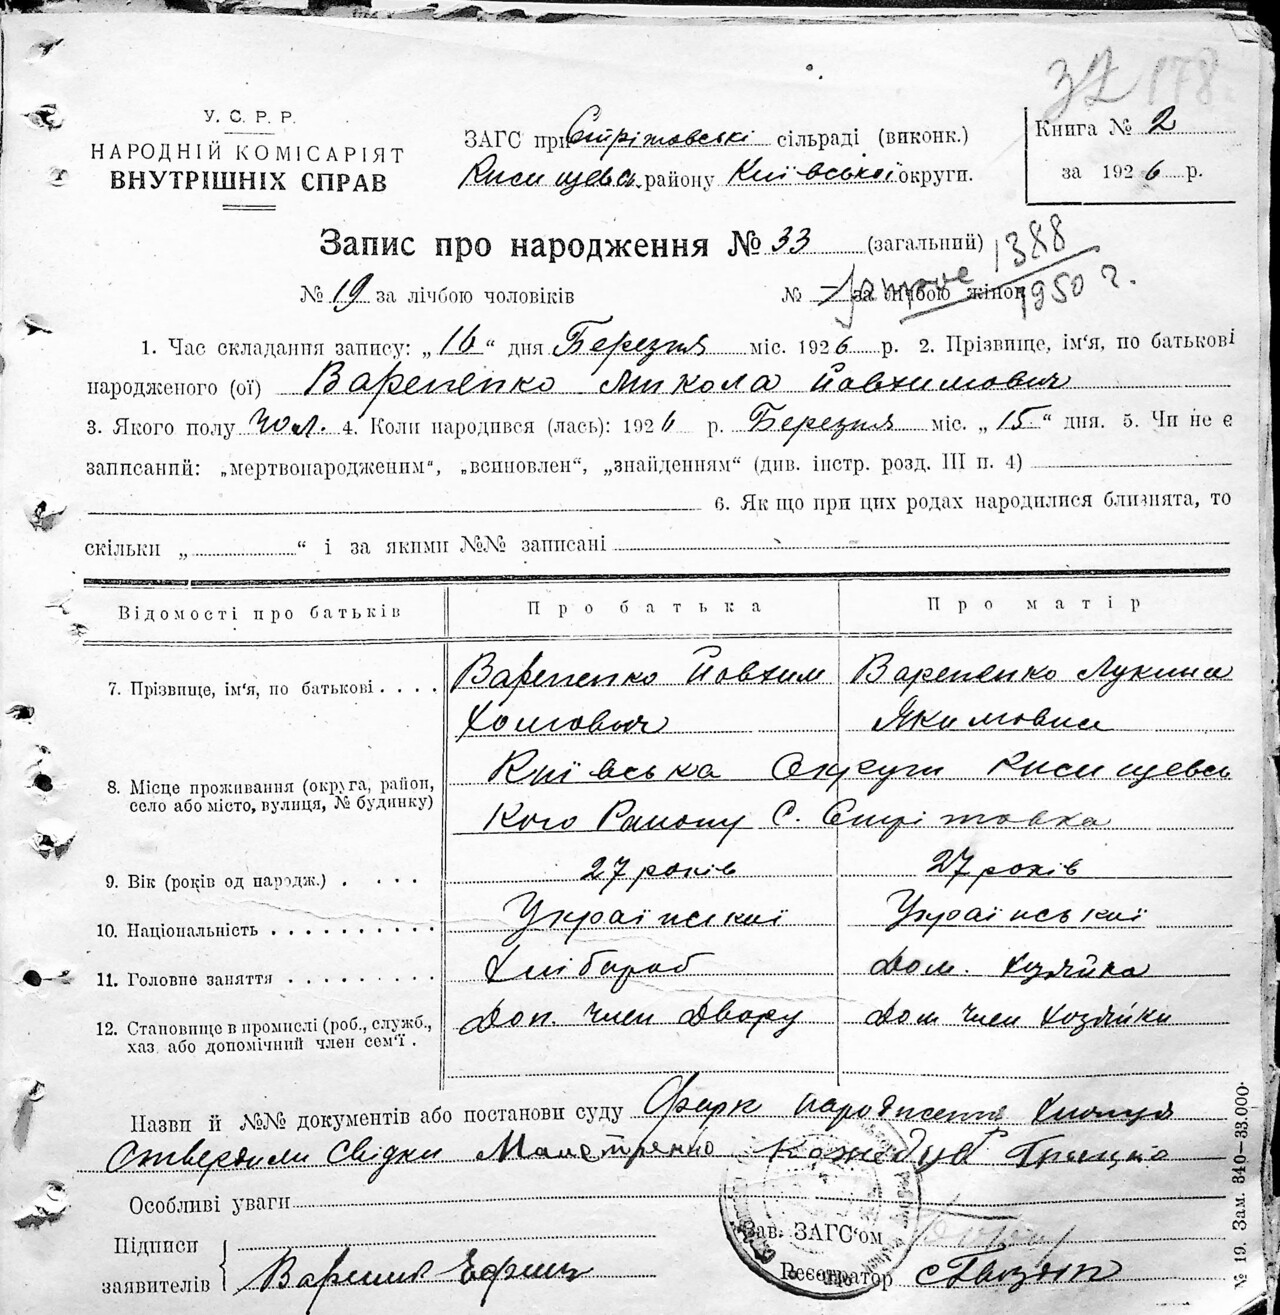 37 178
У. С. Р. Р.
НАРОДНІЙ КОМІСАРІЯТ
ВНУТРІШНІХ СПРАВ
ЗАГС при Стрітовські сільраді (виконк.)
Кисищевс. району Київської округи.
Книга № 2
за 1926 р.
Запис про народження № 33 (загальний)
1388
1950 г.
№ 19 за лічбою чоловіків № — за лічбою жінок
1. Час складання запису: „16“ дня Березня міс. 1926 р. 2. Прізвище, ім'я, по батькові
народженого (ої) Варепенко Микола Йовхимович
3. Якого полу чол. 4. Коли народився (лась): 1926 р. Березня міс. „15“ дня. 5. Чи не є
записаний: „мертвонародженим“, „всиновлен“, „знайденням“ (див. інстр. розд. III п. 4)
6. Як що при цих родах народилися близнята, то
скільки „ “ і за якими №№ записані
Відомості про батьків Про батька Про матір
7. Прізвище, ім'я, по батькові . . . . Варепенко Йовхим Варепенко Лукина
Хомович Якимовна
8. Місце проживання (округа, район,
село або місто, вулиця, № будинку)
Київська Округи Кисищевсь
кого Району С. Стрітовка
9. Вік (років од народж.) . . . . . 27 років 27 років
10. Національність . . . . . . . . . . Український Український
11. Головне заняття . . . . . . . . Хлібороб Дом. хозяйка
12. Становище в промислі (роб., служб.,
хаз. або допомічний член сем'ї .
Доп. член Двору Дом член хозяйки
Назви й №№ документів або постанови суду Факт народження хлопця
Ствердили Свідки Кожедуб Грицько
Особливі уваги
Підписи
заявителів
Зав. ЗАГС'ом
Реєстратор
№ 19. Зам. 340—33.000.